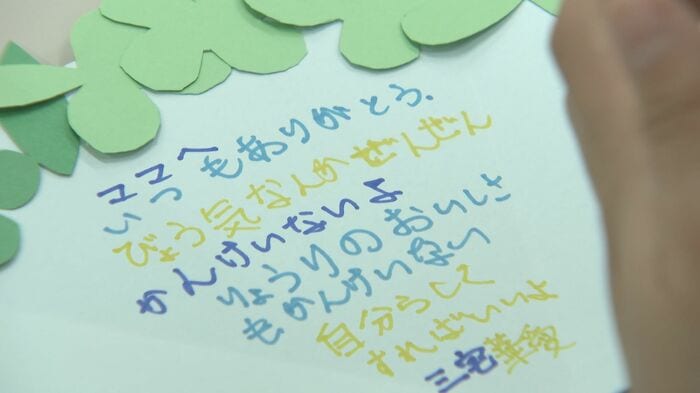 ココへ
いつもありがとう.
びょう気なんかぜんぜん
かんけいないよ
りょうりのおいしさ
もかんけいない
自分らしくて
すればいいよ
三宅華愛